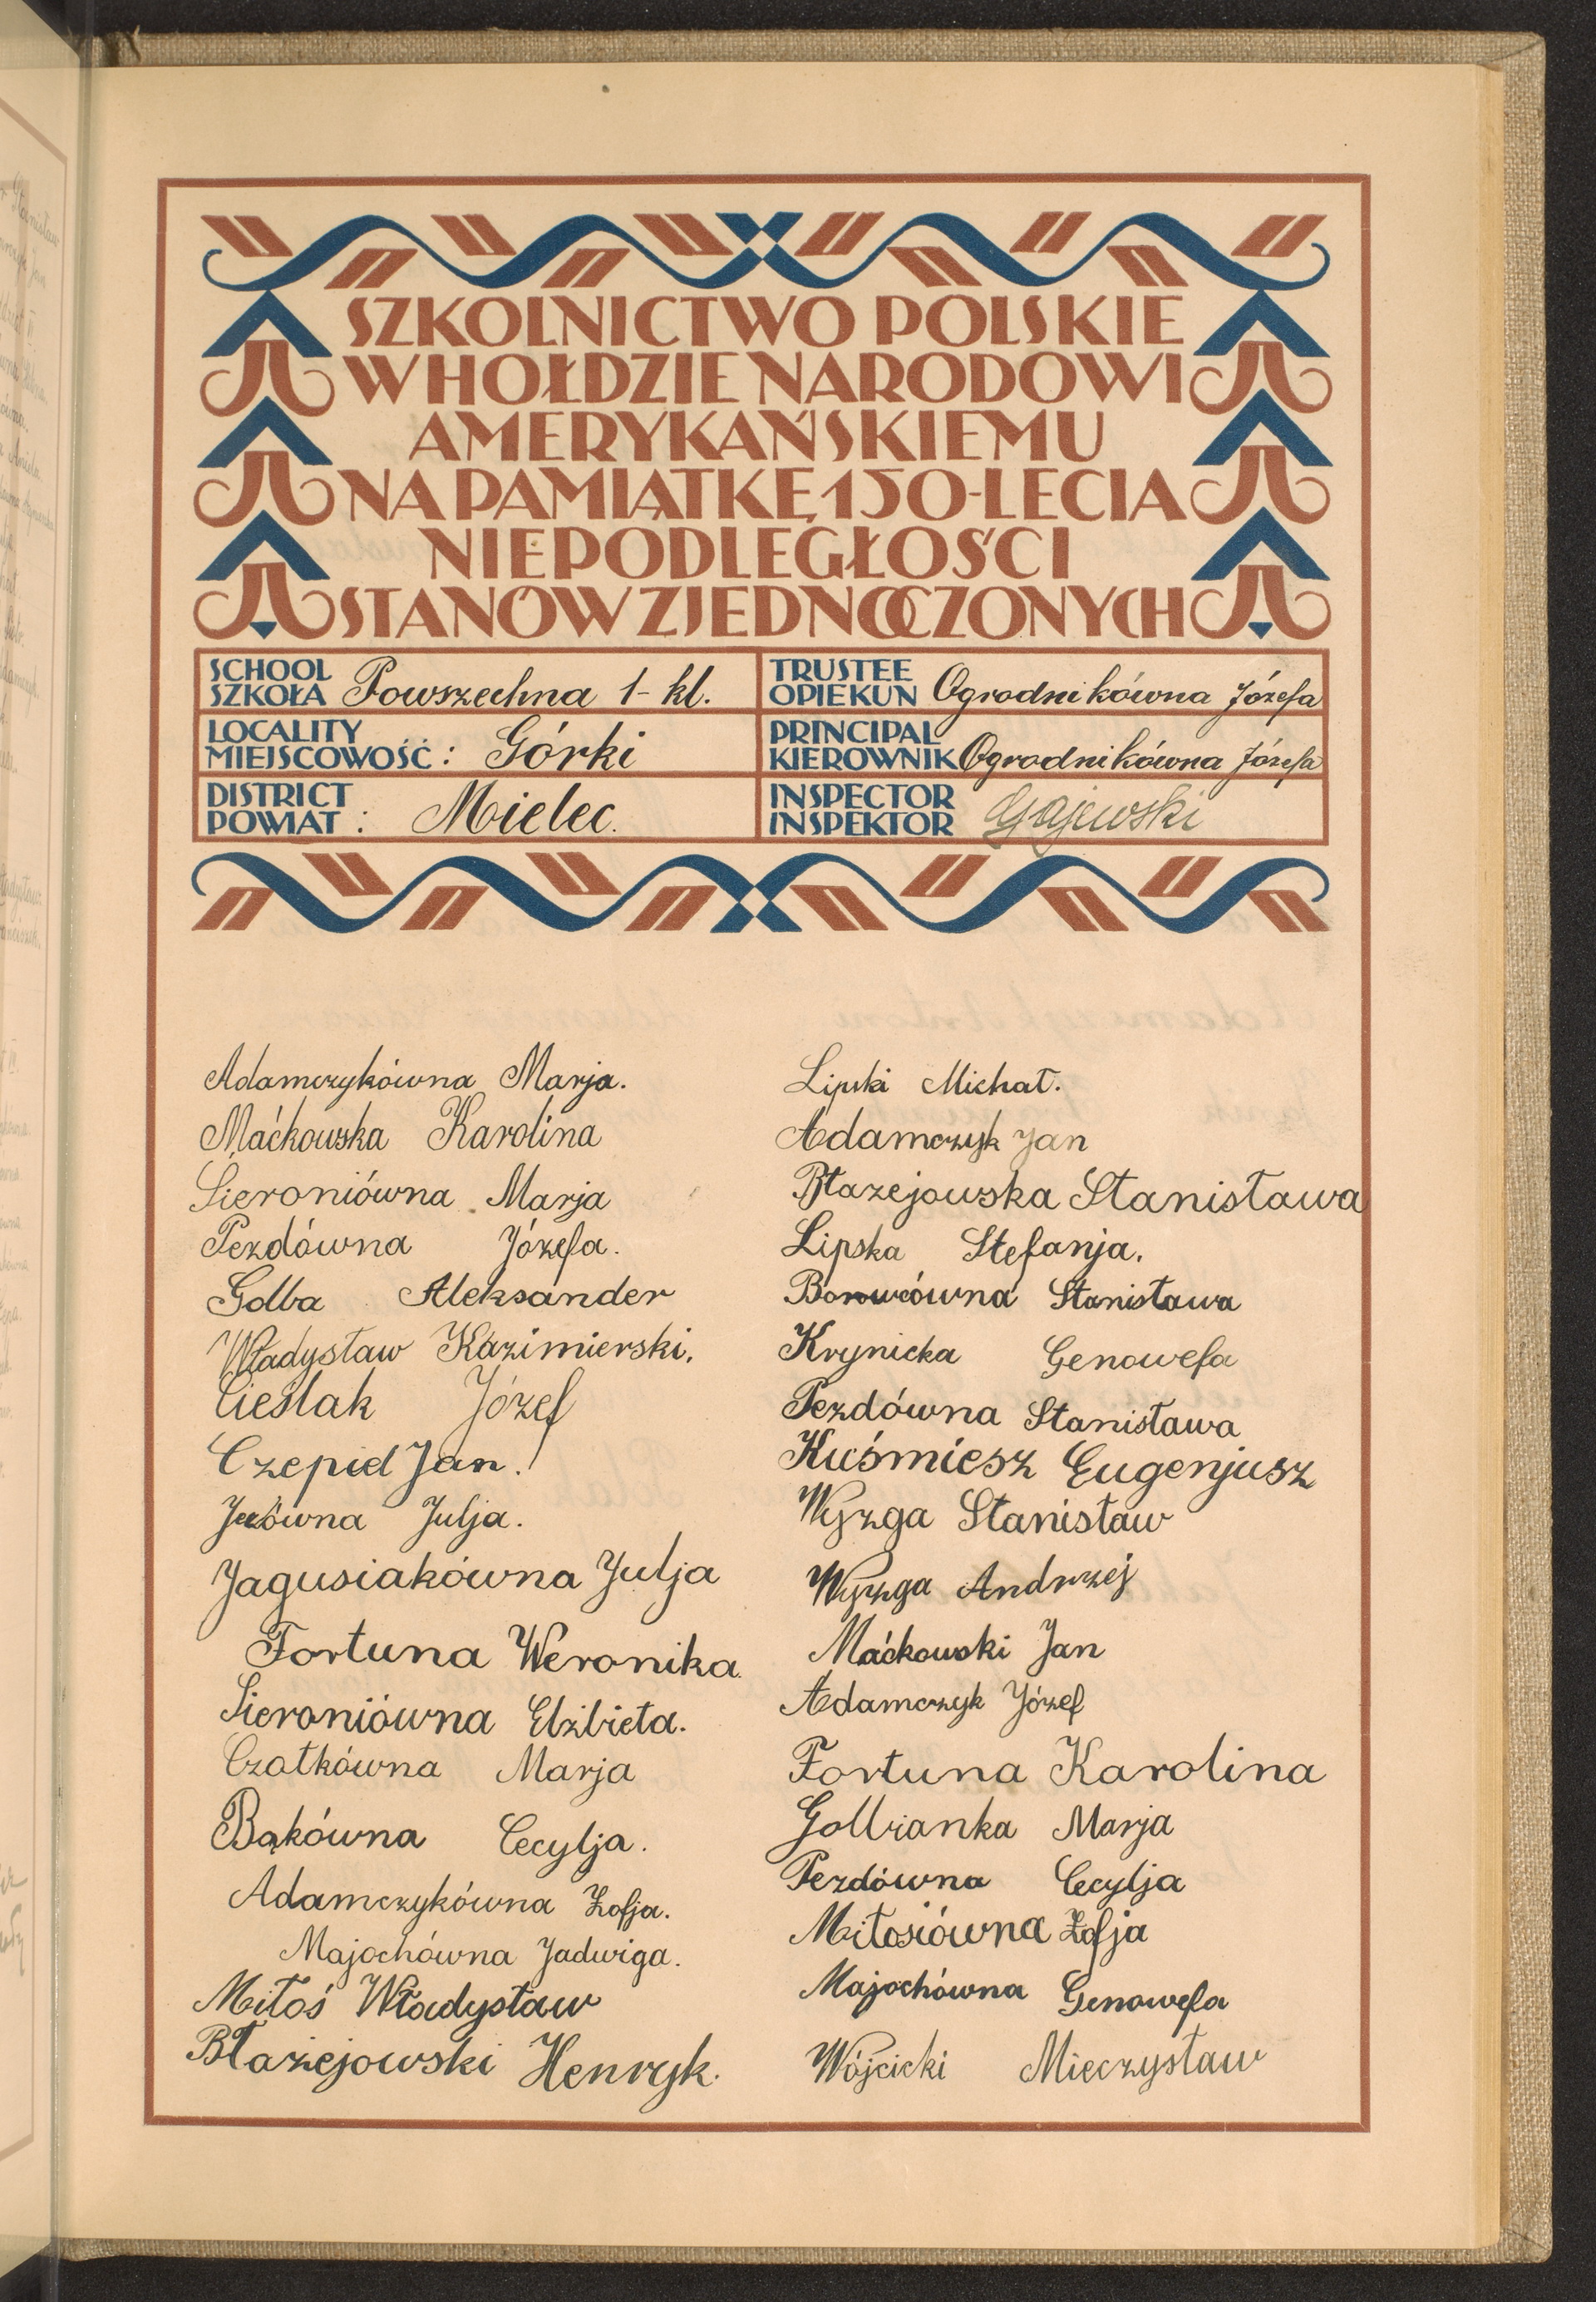 SZKOLNICTWO POLSKIE
W HOŁDZIE NARODOWI
AMERYKAŃSKIEMU
NA PAMIĄTKĘ 150-LECIA
NIEPODLEGŁOŚCI
STANÓW ZJEDNOCZONYCH
SCHOOL
SZKOŁA Powszechna 1-kl.
TRUSTEE
OPIEKUN Ogrodnikówna Józefa
LOCALITY
MIEJSCOWOŚĆ: Górki
PRINCIPAL
KIEROWNIK Ogrodnikówna Józefa
DISTRICT
POWIAT: Mielec.
INSPECTOR
INSPEKTOR Gajewski
Adamczykówna Marja.
Maćkowska Karolina
Sieroniówna Marja
Pezdówna Józefa.
Golba Aleksander
Władysław Kazimierski.
Cieślak Józef
Czepiel Jan.
Julja.
Jagusiakówna Julja
Fortuna Weronika
Sieroniówna Elżbieta.
Czotkówna Marja
Bąkówna Cecylja.
Adamczykówna Zofja.
Majochówna Jadwiga.
Miłoś Władysław
Błażejowski Henryk.
Lipski Michał.
Adamczyk Jan
Błazejowska Stanisława
Lipska Stefanja.
Stanisława
Krynicka Genowefa
Pezdówna Stanisława
Kuśmiesz Eugenjusz
Wyzga Stanisław
Wyzga Andrzej
Maćkowski Jan
Adamczyk Józef
Fortuna Karolina
Golbianka Marja
Pezdówna Cecylja
Miłosiówna Zofja
Majochówna Genowefa
Wójcicki Mieczysław